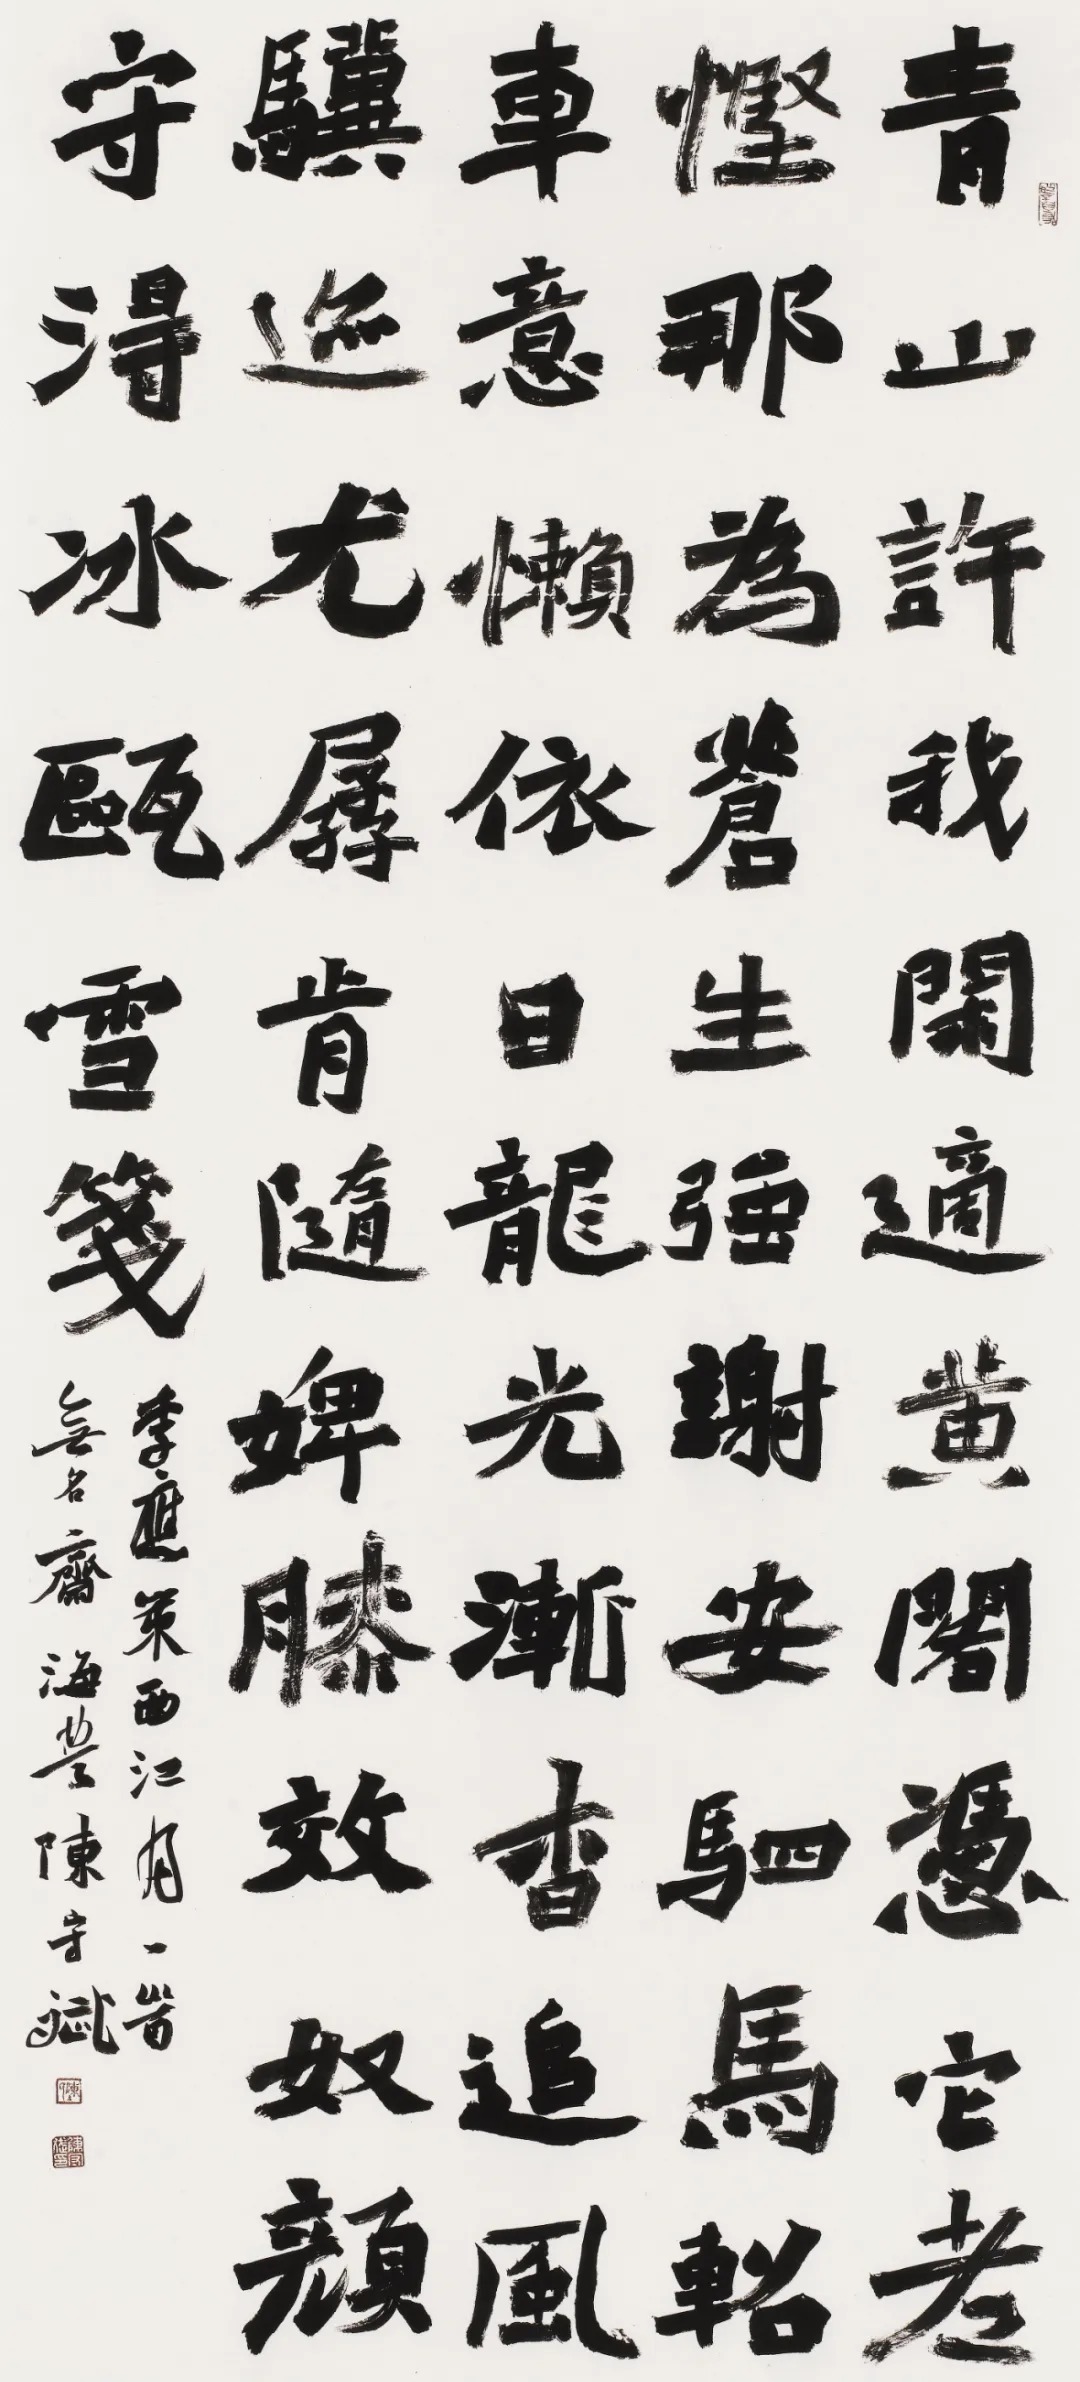 青山許我閑適黄閣憑它老
慳那為蒼生強謝安駟馬軺
車意懶依日龍光漸杳追風
驥迹尤孱肯隨婢膝效奴顔
守得冰甌雪箋
李應策西江月一首
無名齋海農陳守斌